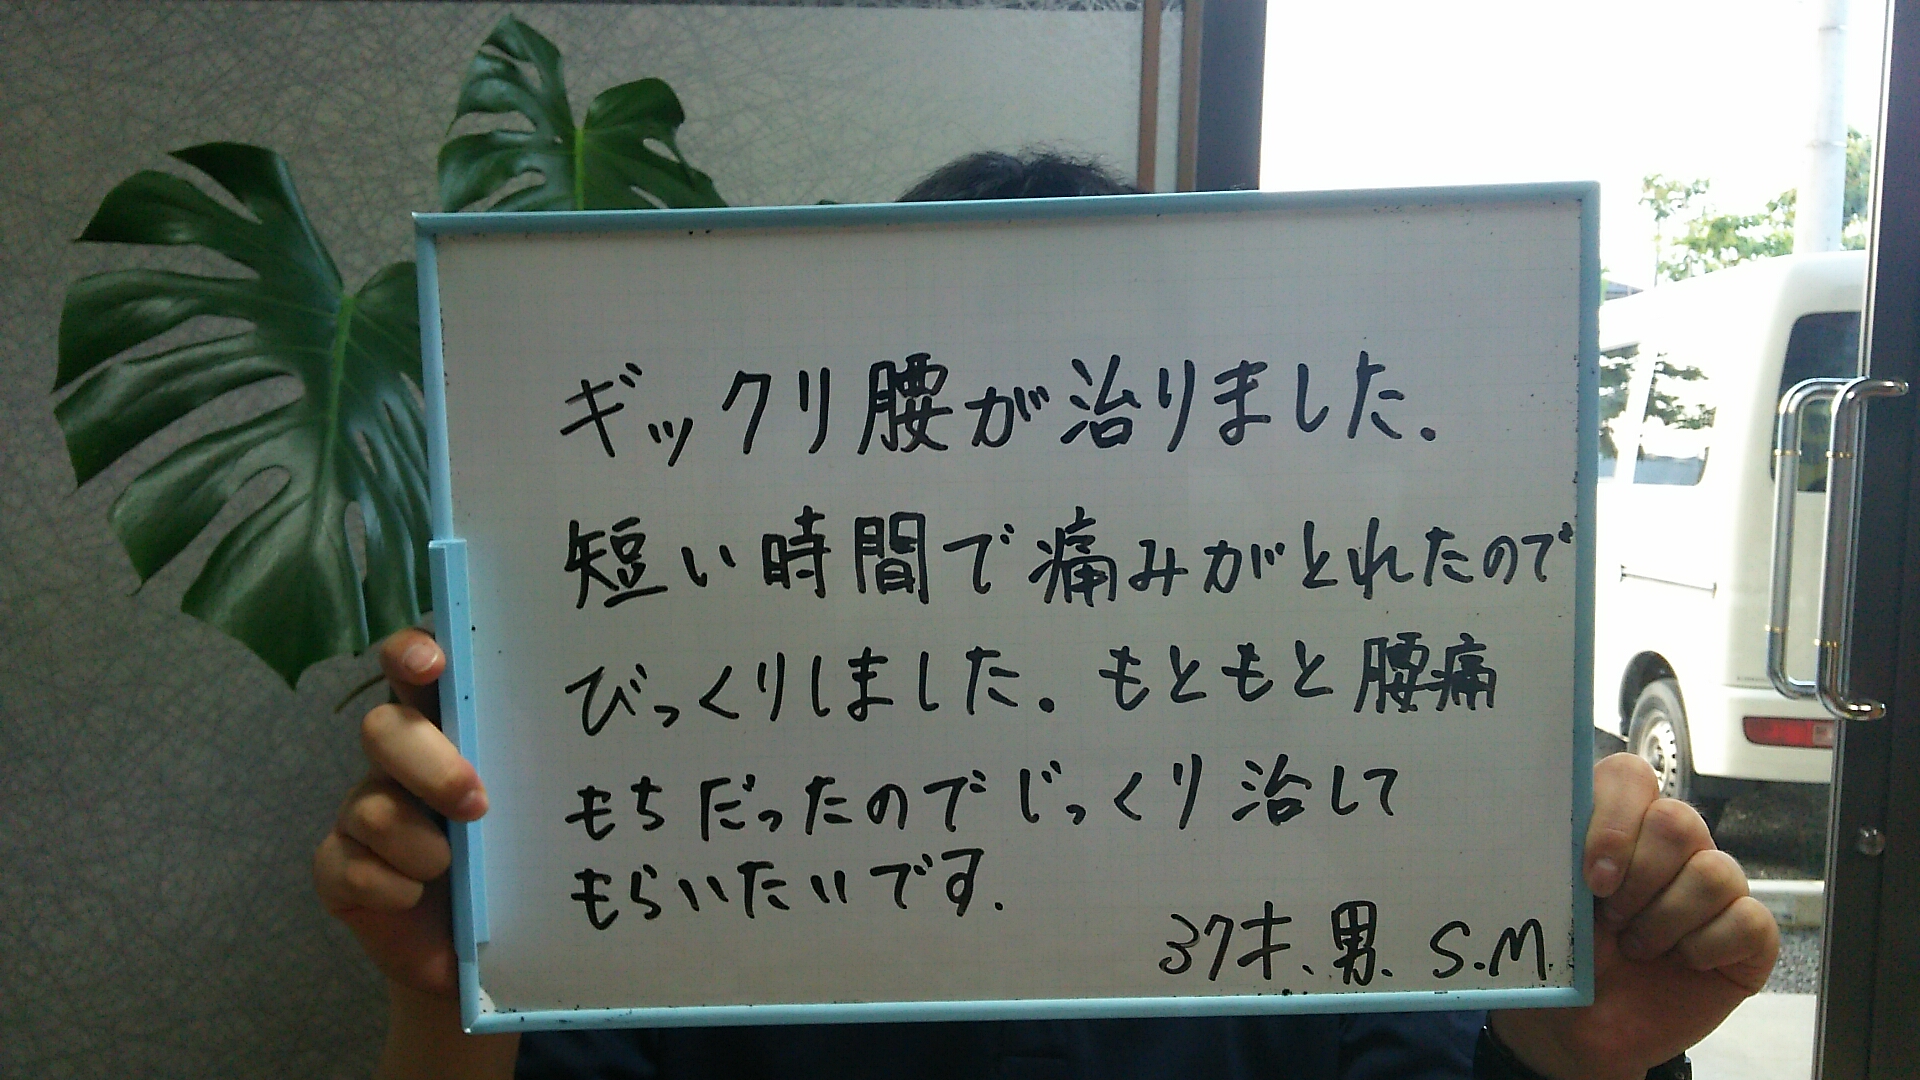 ギックリ腰が治りました.
短い時間で痛みがとれたので
びっくりしました。もともと腰痛
もちだったのでじっくり治して
もらいたいです.
37才、男、S.M.